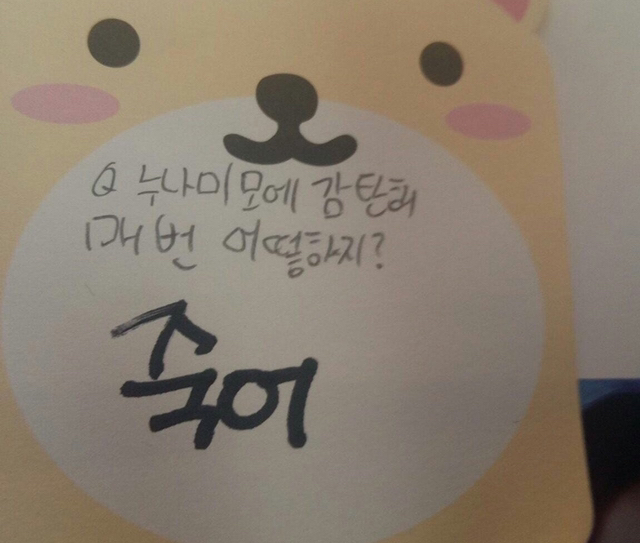 Q 누나미모에 감탄해
매번 어떻하지?
죽어